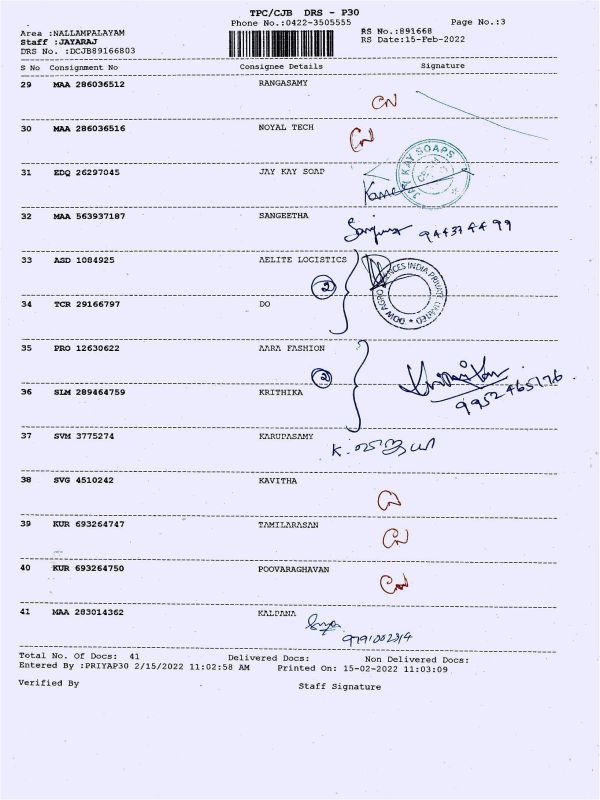 TPC/CJB DRS - P30
Phone No.:0422-3505555
Page No.:3
Area :NALLAMPALAYAM
RS No.:891668
Staff :JAYARAJ
RS Date:15-Feb-2022
DRS No. :DCJB89166803
S No Consignment No Consignee Details Signature
29 MAA 286036512 RANGASAMY
30 MAA 286036516 NOYAL TECH
31 EDQ 26297045 JAY KAY SOAP
JAY KAY SOAPS
32 MAA 563937187 SANGEETHA
33 ASD 1084925 AELITE LOGISTICS
2
DOW AGRO SCIENCES INDIA PRIVATE LIMITED
34 TCR 29166797 DO
35 PRO 12630622 AARA FASHION
2
36 SLM 289464759 KRITHIKA
9952465176
37 SVM 3775274 KARUPASAMY
38 SVG 4510242 KAVITHA
39 KUR 693264747 TAMILARASAN
40 KUR 693264750 POOVARAGHAVAN
41 MAA 283014362 KALPANA
Total No. Of Docs: 41 Delivered Docs: Non Delivered Docs:
Entered By :PRIYAP30 2/15/2022 11:02:58 AM Printed On: 15-02-2022 11:03:09
Verified By Staff Signature